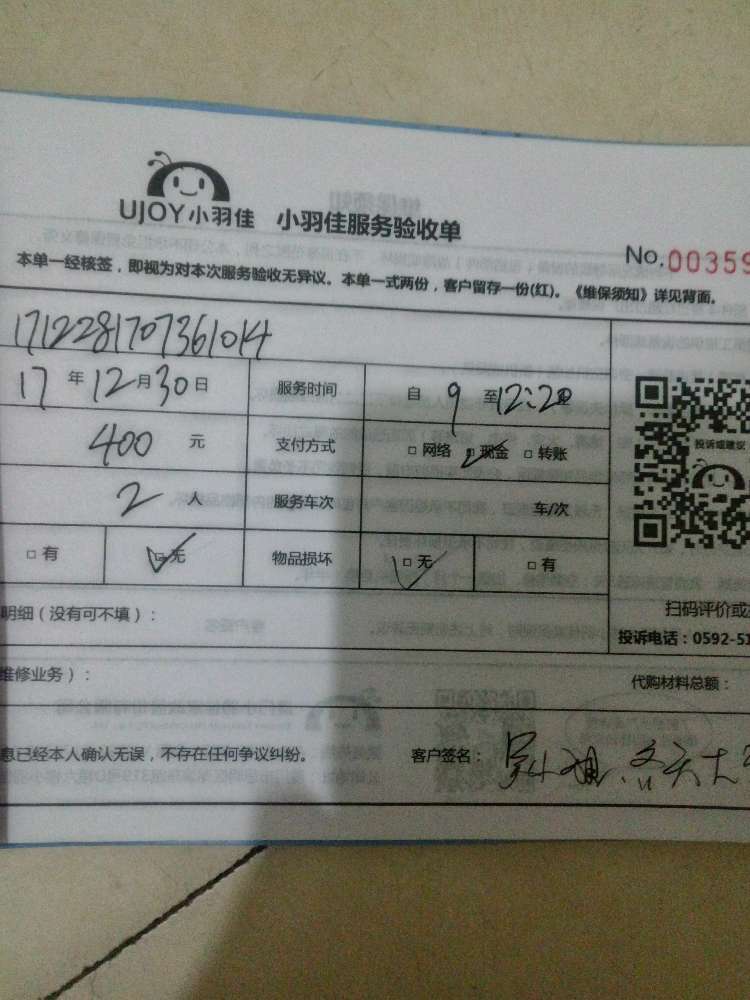 UJOY小羽佳 小羽佳服务验收单
No.00359
本单一经核签，即视为对本次服务验收无异议。本单一式两份，客户留存一份(红)。《维保须知》详见背面。
1712281707361014
17年12月30日 服务时间 自9至12:20
400元 支付方式 □网络 □现金 □转账
投诉或建议
2人 服务车次 车/次
□有 □无 物品损坏 □无 □有
明细（没有可不填）：
扫码评价或
投诉电话：0592-51
维修业务）：
代购材料总额：
息已经本人确认无误，不存在任何争议纠纷。 客户签名：